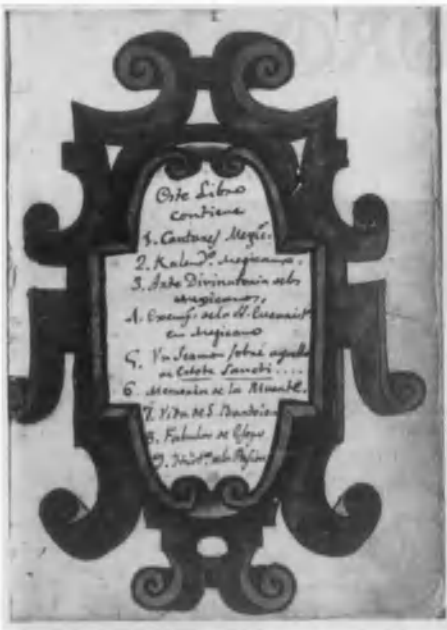 Este Libro
contiene
1. Cantares Mexic.
2. Kalend.º Mexicano.
3. Arte Divinatoria de los
Mexicanos.
4. de la
en Mexicano
5. Un Sermon sobre aquello
de Estote Sancti....
6. Memoria de la Muerte.
7. Vida de S. Bartolome
8. Fabulas de Esopo
9. Hist.ª de la Pasion